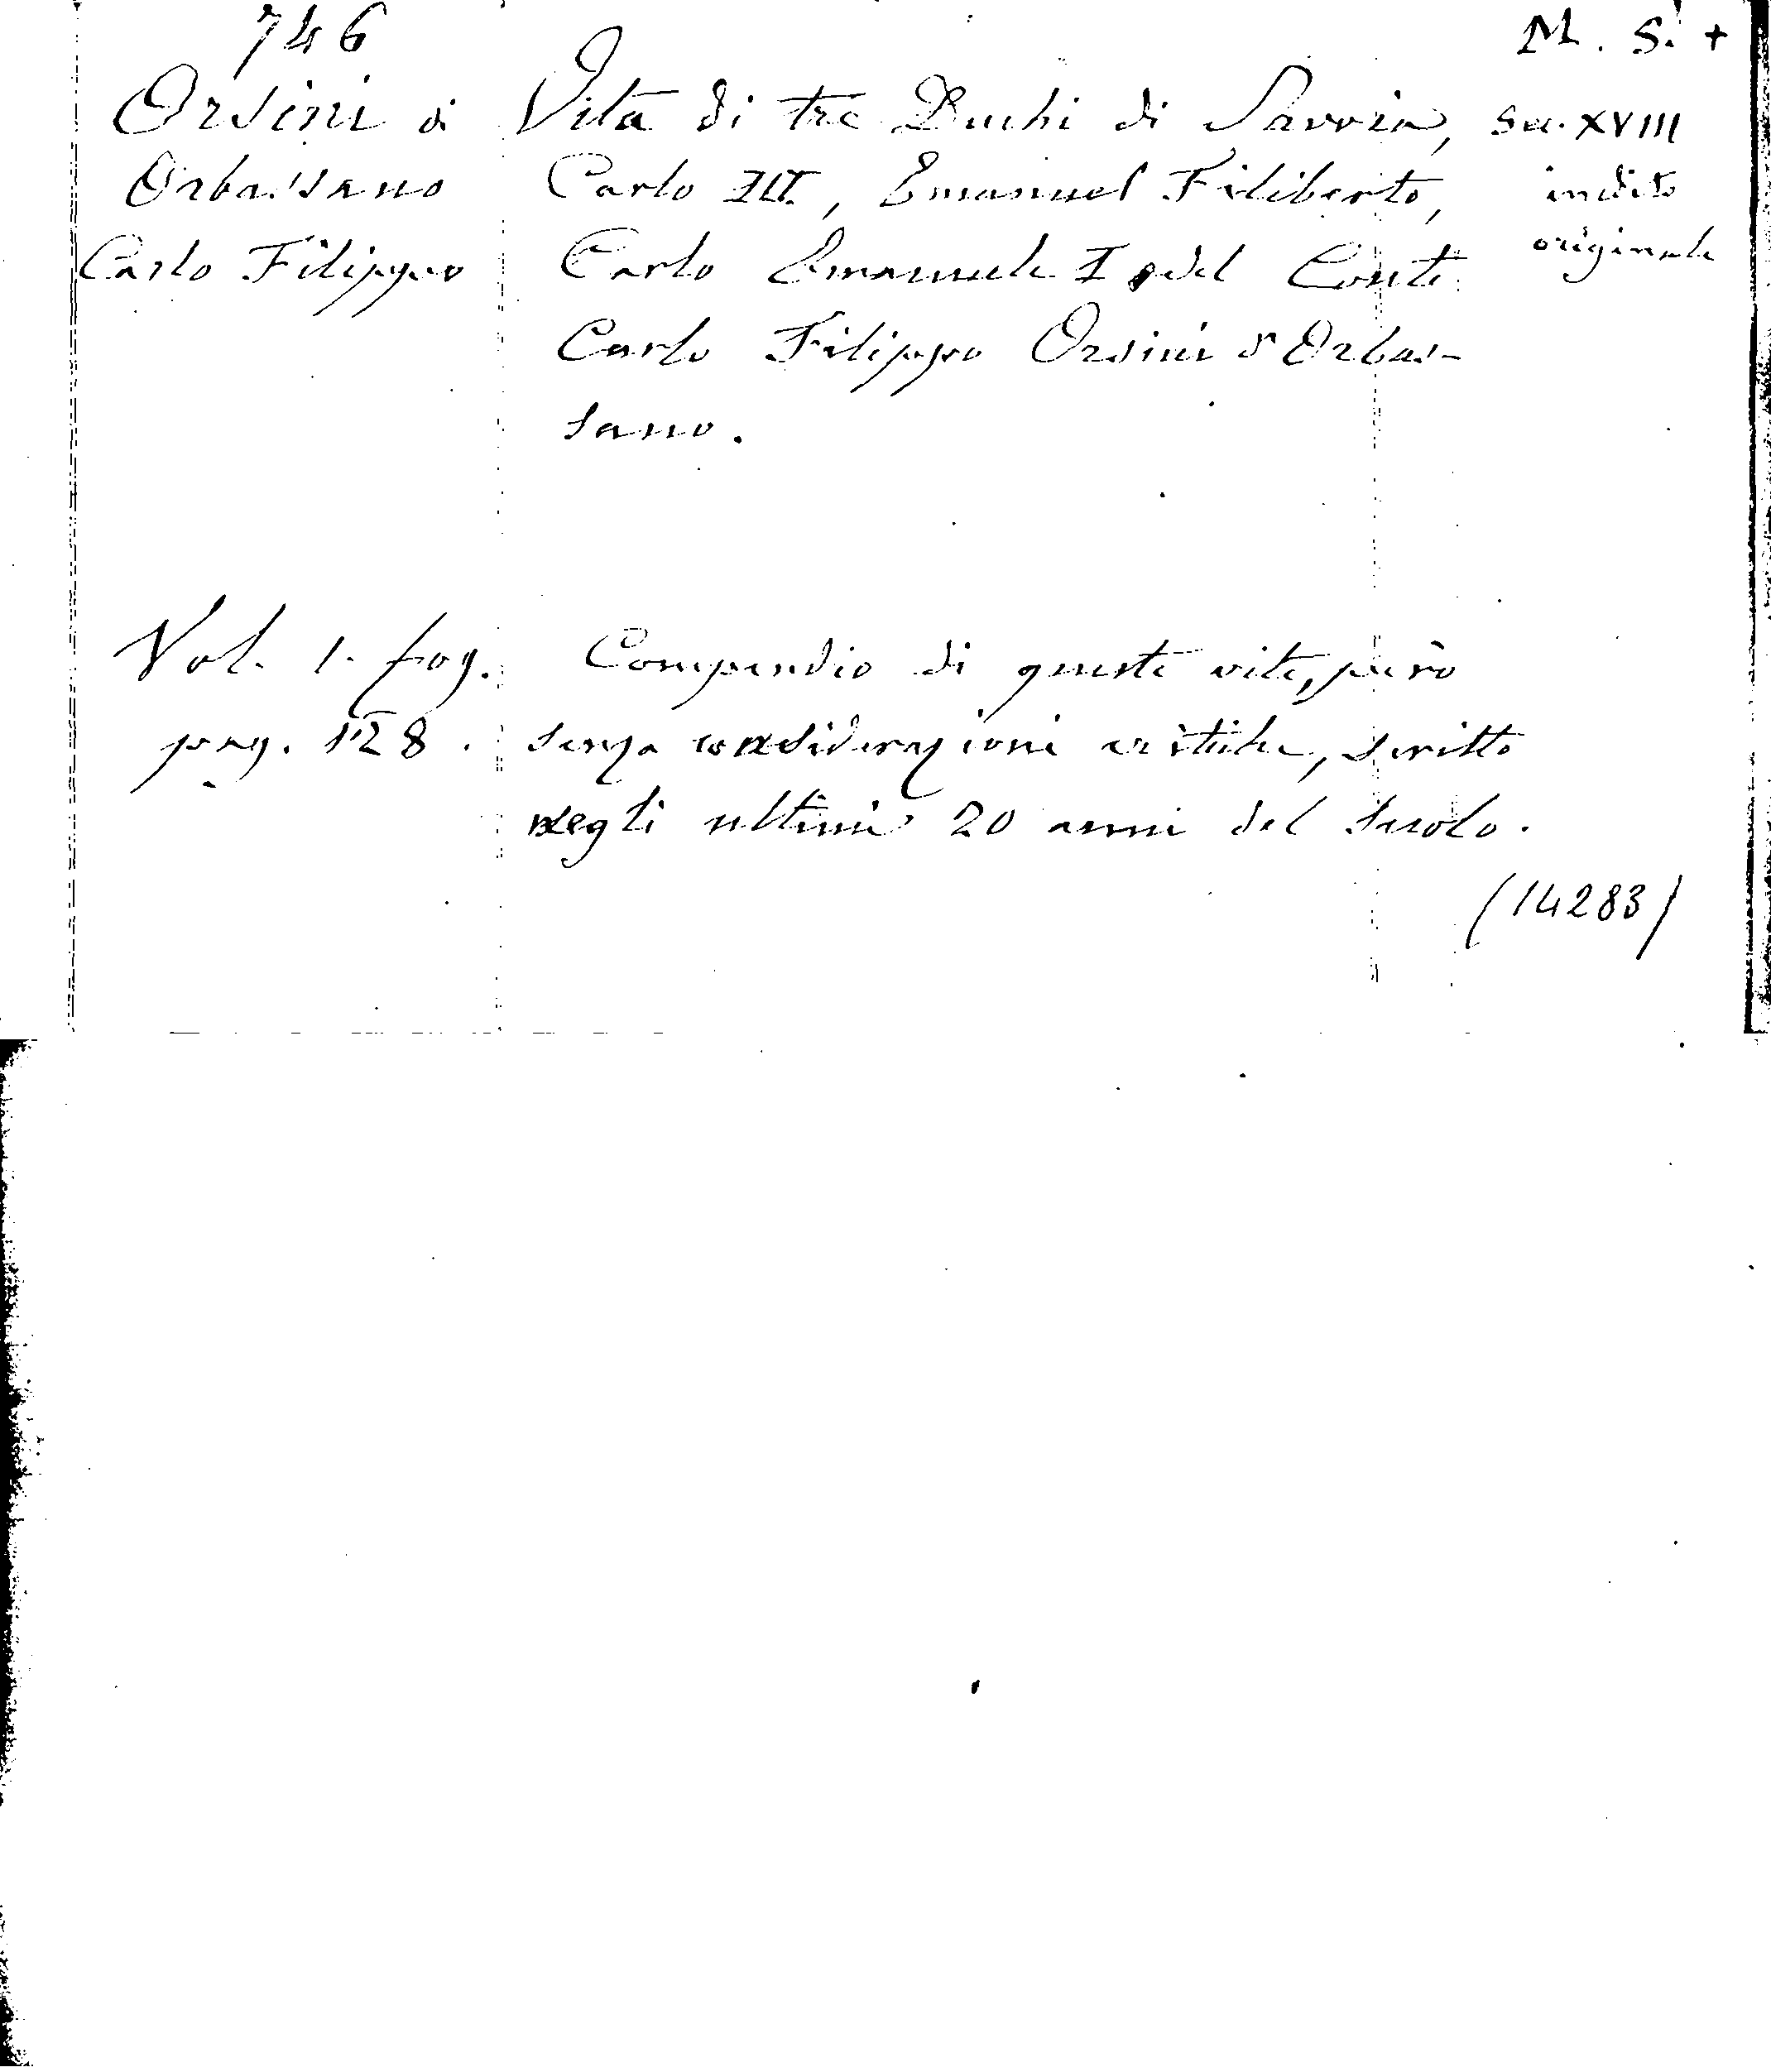 746
M. S. +
Orsini di
Orbassano
Carlo Filippo
Vita di tre Duchi di Savoia,
Carlo III, Emanuel Filiberto,
Carlo Emanuele I del Conte
Carlo Filippo Orsini d'Orbas-
sano.
Sec. XVIII
inedito
originale
Vol. 1. fog.
pag. 128.
Compendio di queste vite, però
senza considerazioni critiche, scritto
negli ultimi 20 anni del secolo.
(14283)